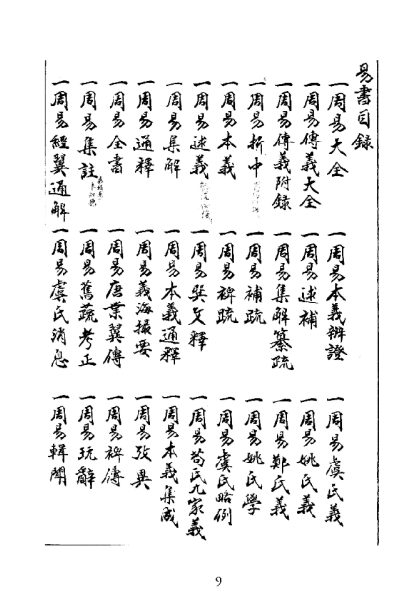 易書目錄
一周易大全 一周易本義辨證 一周易虞氏義
一周易傳義大全 一周易述補 一周易姚氏義
一周易傳義附錄 一周易集解纂疏 一周易鄭氏義
一周易折中 一周易補疏 一周易姚氏學
一周易本義 一周易稗疏 一周易虞氏略例
一周易述義 一周易異文釋 一周易荀氏九家義
一周易集解 一周易本義通釋 一周易本義集成
一周易通釋 一周易義海撮要 一周易攷異
一周易全書 一周易翼傳 一周易裨傳
一周易集註 一周易舊疏考正 一周易玩辭
一周易經翼通解 一周易虞氏消息 一周易輯聞
9